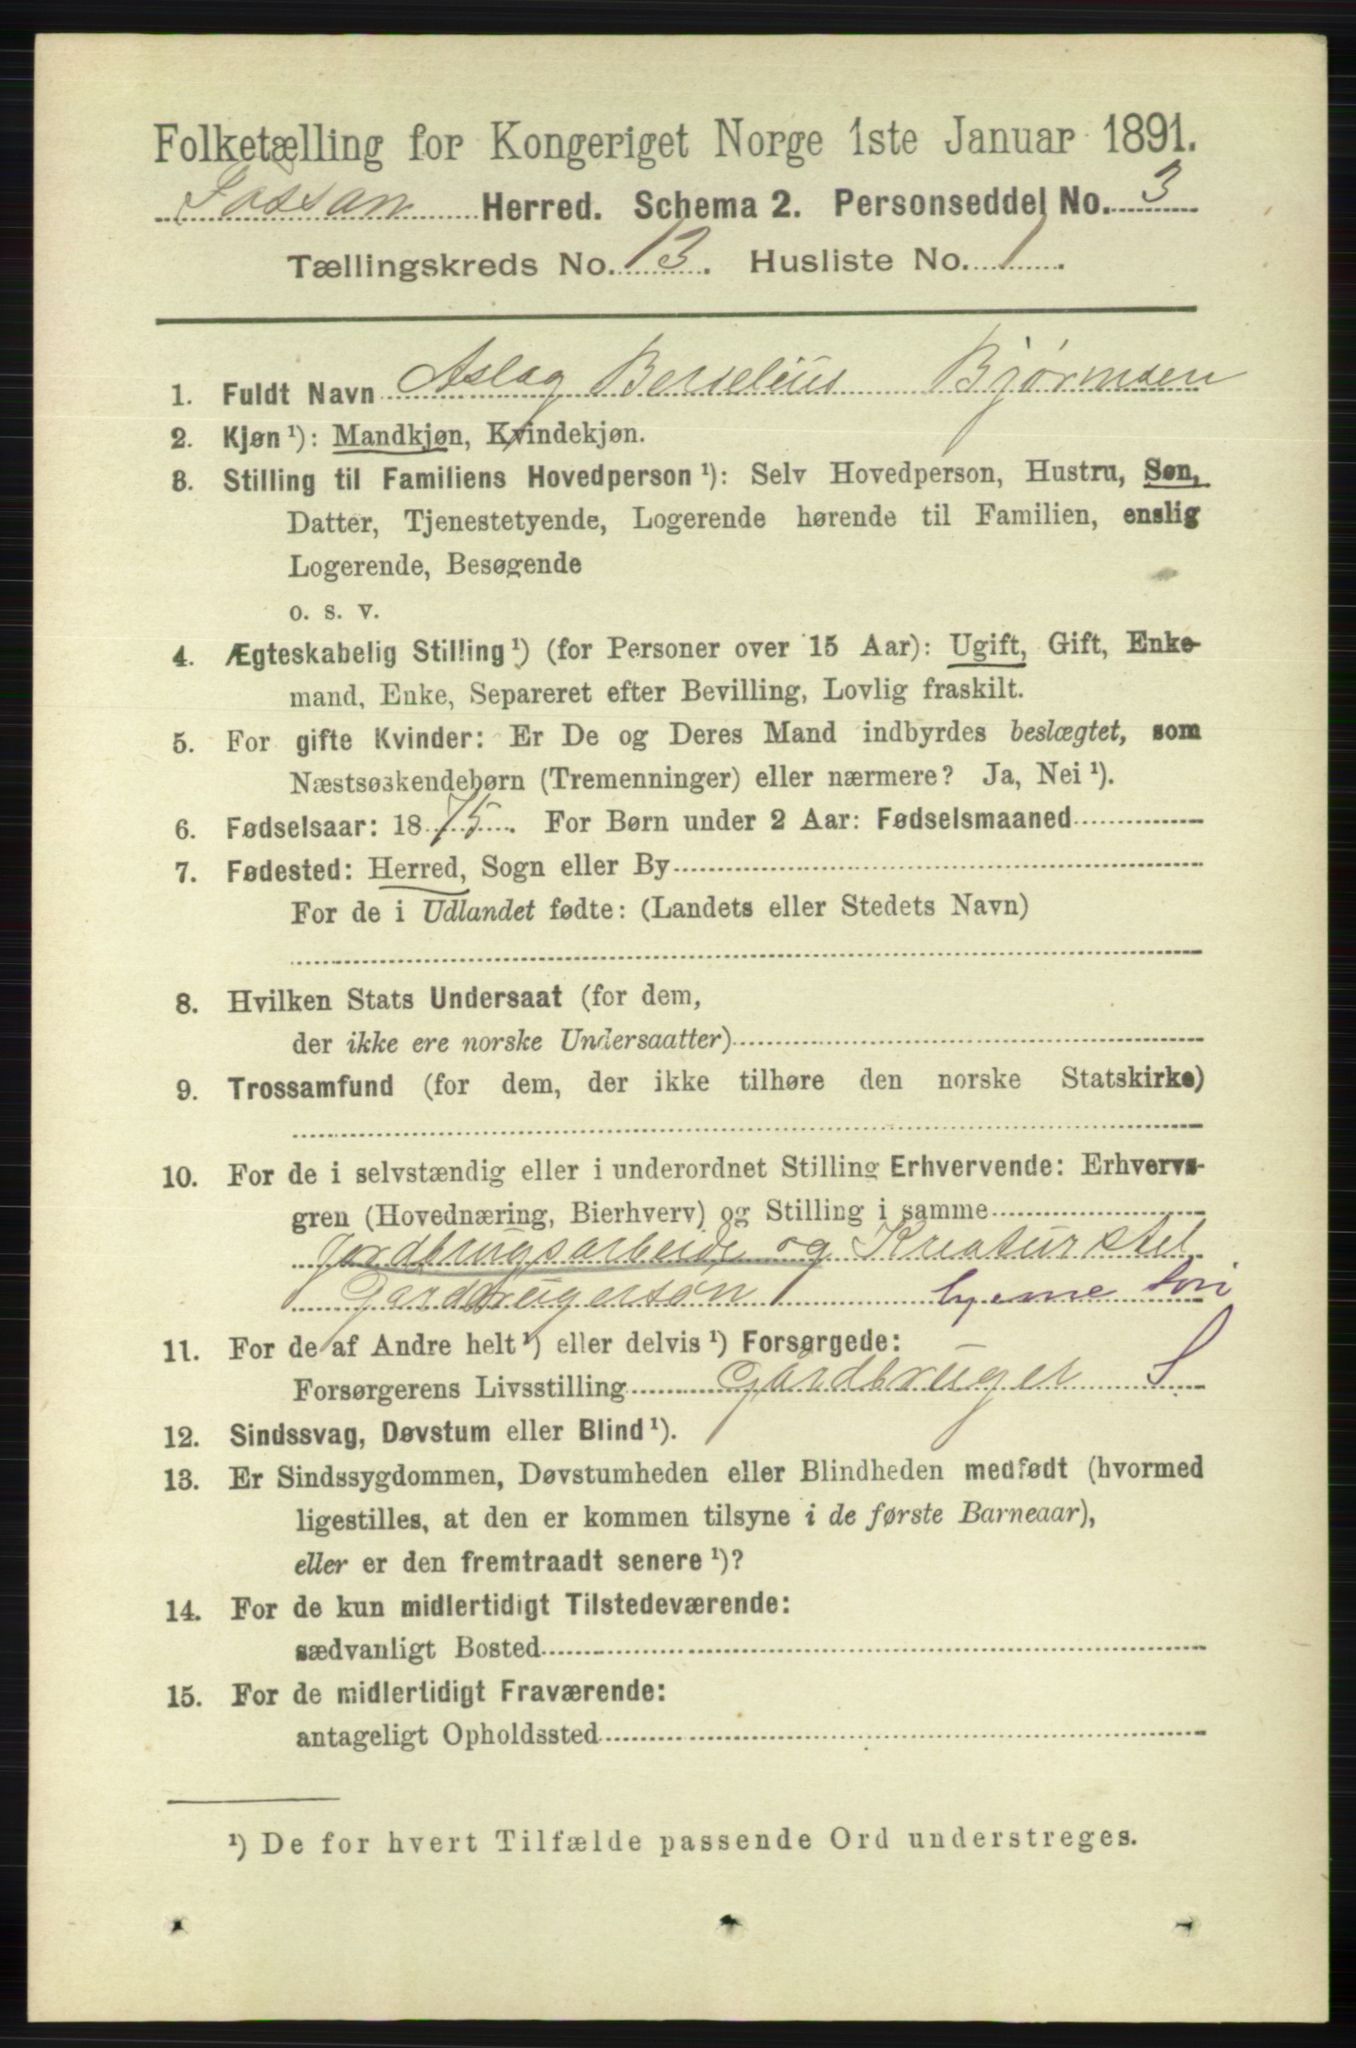 Folketælling for Kongeriget Norge 1ste Januar 1891.
Fossan Herred. Schema 2. Personseddel No. 3
Tællingskreds No. 13. Husliste No. 1.
1. Fuldt Navn Aslag Berselius Bjørnsen
2. Kjøn ¹): Mandkjøn, Kvindekjøn.
3. Stilling til Familiens Hovedperson ¹): Selv Hovedperson, Hustru, Søn,
Datter, Tjenestetyende, Logerende hørende til Familien, enslig
Logerende, Besøgende
o. s. v.
4. Ægteskabelig Stilling ¹) (for Personer over 15 Aar): Ugift, Gift, Enke-
mand, Enke, Separeret efter Bevilling, Lovlig fraskilt.
5. For gifte Kvinder: Er De og Deres Mand indbyrdes beslægtet, som
Næstsøskendebørn (Tremenninger) eller nærmere? Ja, Nei ¹).
6. Fødselsaar: 1875. For Børn under 2 Aar: Fødselsmaaned
7. Fødested: Herred, Sogn eller By
For de i Udlandet fødte: (Landets eller Stedets Navn)
8. Hvilken Stats Undersaat (for dem,
der ikke ere norske Undersaatter)
9. Trossamfund (for dem, der ikke tilhøre den norske Statskirke)
10. For de i selvstændig eller i underordnet Stilling Erhvervende: Erhvervs-
gren (Hovednæring, Bierhverv) og Stilling i samme
Jordbrugsarbeide og Kreaturstel
Gardbrugersøn hjeme
11. For de af Andre helt ¹) eller delvis ¹) Forsørgede:
Forsørgerens Livsstilling Gardbruger S
12. Sindssvag, Døvstum eller Blind ¹).
13. Er Sindssygdommen, Døvstumheden eller Blindheden medfødt (hvormed
ligestilles, at den er kommen tilsyne i de første Barneaar),
eller er den fremtraadt senere ¹)?
14. For de kun midlertidigt Tilstedeværende:
sædvanligt Bosted
15. For de midlertidigt Fraværende:
antageligt Opholdssted
¹) De for hvert Tilfælde passende Ord understreges.